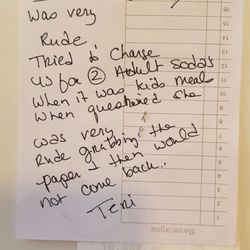 Was very
Rude
Tried to Charge
us for 2 Adult sodas
When it was kids meal
When questioned she
was very
Rude grabbing the
paper & then would
not come back..
Teri
Beverages
1
2
3
4
5
6
7
8
9
10
11
12
13
14
15
16